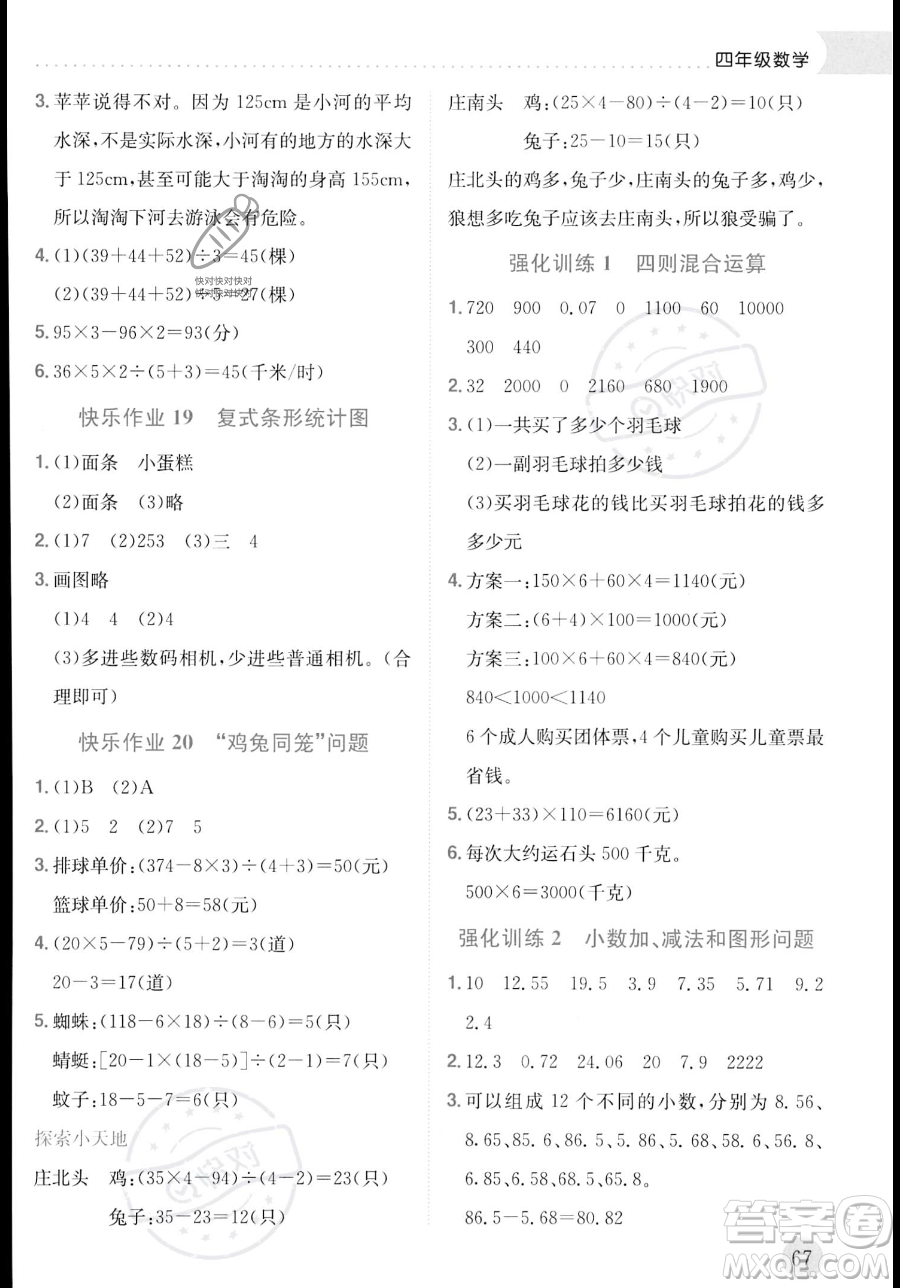 四年级数学
3. 苹苹说得不对。因为 125cm 是小河的平均
水深,不是实际水深,小河有的地方的水深大
于 125cm,甚至可能大于淘淘的身高 155cm,
所以淘淘下河去游泳会有危险。
4. (1)(39+44+52)÷3=45(棵)
快对快对快对
快对快对快对
(2)(39+44+52)÷5=27(棵)
5. 95×3-96×2=93(分)
6. 36×5×2÷(5+3)=45(千米/时)
快乐作业 19 复式条形统计图
1. (1)面条 小蛋糕
(2)面条 (3)略
2. (1)7 (2)253 (3)三 4
3. 画图略
(1)4 (2)4
(3)多进些数码相机,少进些普通相机。(合
理即可)
快乐作业 20 “鸡兔同笼”问题
1. (1)B (2)A
2. (1)5 2 (2)7 5
3. 排球单价:(374-8×3)÷(4+3)=50(元)
篮球单价:50+8=58(元)
4. (20×5-79)÷(5+2)=3(道)
20-3=17(道)
5. 蜘蛛:(118-6×18)÷(8-6)=5(只)
蜻蜓:[20-1×(18-5)]÷(2-1)=7(只)
蚊子:18-5-7=6(只)
探索小天地
庄北头 鸡:(35×4-94)÷(4-2)=23(只)
兔子:35-23=12(只)
庄南头 鸡:(25×4-80)÷(4-2)=10(只)
兔子:25-10=15(只)
庄北头的鸡多,兔子少,庄南头的兔子多,鸡少,
狼想多吃兔子应该去庄南头,所以狼受骗了。
强化训练 1 四则混合运算
1. 720 900 0.07 0 1100 60 10000
300 440
2. 32 2000 0 2160 680 1900
3. (1)一共买了多少个羽毛球
(2)一副羽毛球拍多少钱
(3)买羽毛球花的钱比买羽毛球拍花的钱多
多少元
4. 方案一:150×6+60×4=1140(元)
方案二:(6+4)×100=1000(元)
方案三:100×6+60×4=840(元)
840<1000<1140
6 个成人购买团体票,4 个儿童购买儿童票最
省钱。
5. (23+33)×110=6160(元)
6. 每次大约运石头 500 千克。
500×6=3000(千克)
强化训练 2 小数加、减法和图形问题
1. 10 12.55 19.5 3.9 7.35 5.71 9.2
2.4
2. 12.3 0.72 24.06 20 7.9 2222
3. 可以组成 12 个不同的小数,分别为 8.56、
8.65、85.6、86.5、5.68、5.86、56.8、58.6、
6.58、6.85、65.8、68.5。
86.5-5.68=80.82
快对
快对
答案圈
MXQE.COM
67